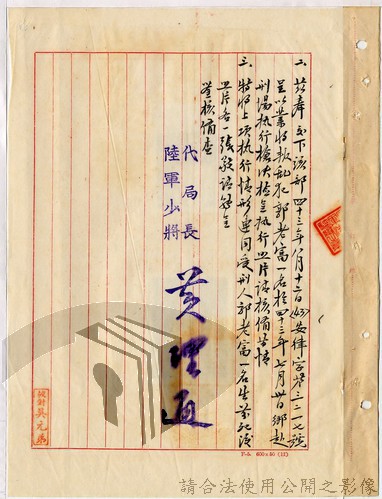 二、茲奉交下該部四十三年八月十二日(43)安律字第三二一七號
呈以業將叛亂犯郭老富一名於四十三年七月卅日綁赴
刑場執行槍決檢呈執行照片請核備等情
三、特將上項執行情形連同受刑人郭老富一名生前死後
照片各一張敬請鑒
鑒核備查
代局長
陸軍少將
黃
繕對吳元
F-5. 600×50 (12)
請合法使用公開之影像